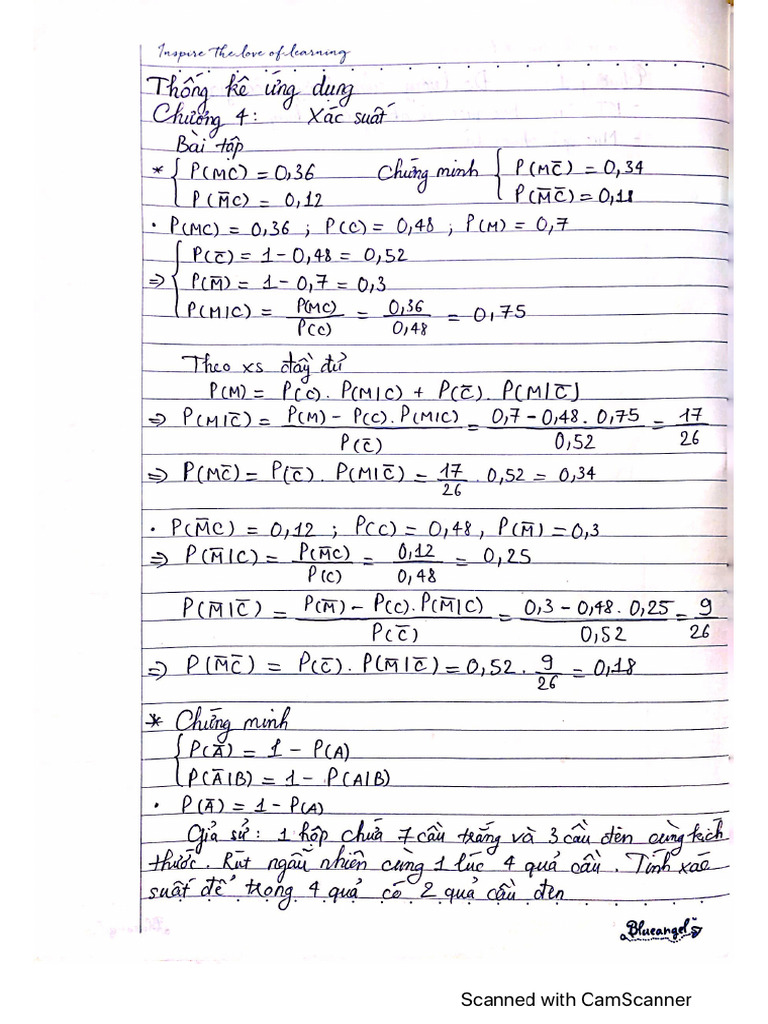 Inspire the love of learning
Thống kê ứng dụng
Chương 4: Xác suất
Bài tập
* { P(MC) = 0,36 Chứng minh { P(MC̅) = 0,34
P(M̅C) = 0,12 P(M̅C̅) = 0,18
• P(MC) = 0,36 ; P(C) = 0,48 ; P(M) = 0,7
{ P(C̅) = 1 - 0,48 = 0,52
⇒ P(M̅) = 1 - 0,7 = 0,3
P(M|C) = P(MC)/P(C) = 0,36/0,48 = 0,75
Theo xs đầy đủ
P(M) = P(C). P(M|C) + P(C̅). P(M|C̅)
⇒ P(M|C̅) = (P(M) - P(C).P(M|C))/P(C̅) = (0,7 - 0,48. 0,75)/0,52 = 17/26
⇒ P(MC̅) = P(C̅). P(M|C̅) = 17/26 . 0,52 = 0,34
• P(M̅C) = 0,12 ; P(C) = 0,48, P(M̅) = 0,3
⇒ P(M̅|C) = P(M̅C)/P(C) = 0,12/0,48 = 0,25
P(M̅|C̅) = (P(M̅) - P(C).P(M̅|C))/P(C̅) = (0,3 - 0,48. 0,25)/0,52 = 9/26
⇒ P(M̅C̅) = P(C̅). P(M̅|C̅) = 0,52 . 9/26 = 0,18
* Chứng minh
{ P(A̅) = 1 - P(A)
P(A̅|B) = 1 - P(A|B)
• P(A̅) = 1 - P(A)
Giả sử: 1 hộp chứa 7 cầu trắng và 3 cầu đen cùng kích
thước. Rút ngẫu nhiên cùng 1 lúc 4 quả cầu. Tính xác
suất để trong 4 quả có 2 quả cầu đen
Blueangel
Scanned with CamScanner